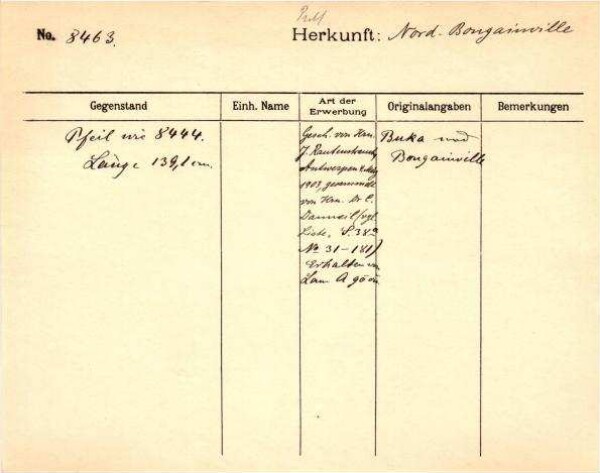 No. 8463.
Herkunft: Nord-Bougainville
Gegenstand Einh. Name Art der Erwerbung Originalangaben Bemerkungen
Pfeil wie 8444.
Länge 139,1 cm.
Gesch. von Hrn.
J. Rautenstrauch,
Antwerpen
1903, gesammelt
von Hrn. Dr. E.
Danneil (vgl.
Liste, S. 38a
No 31-181)
Erhalten von
Buka und
Bougainville